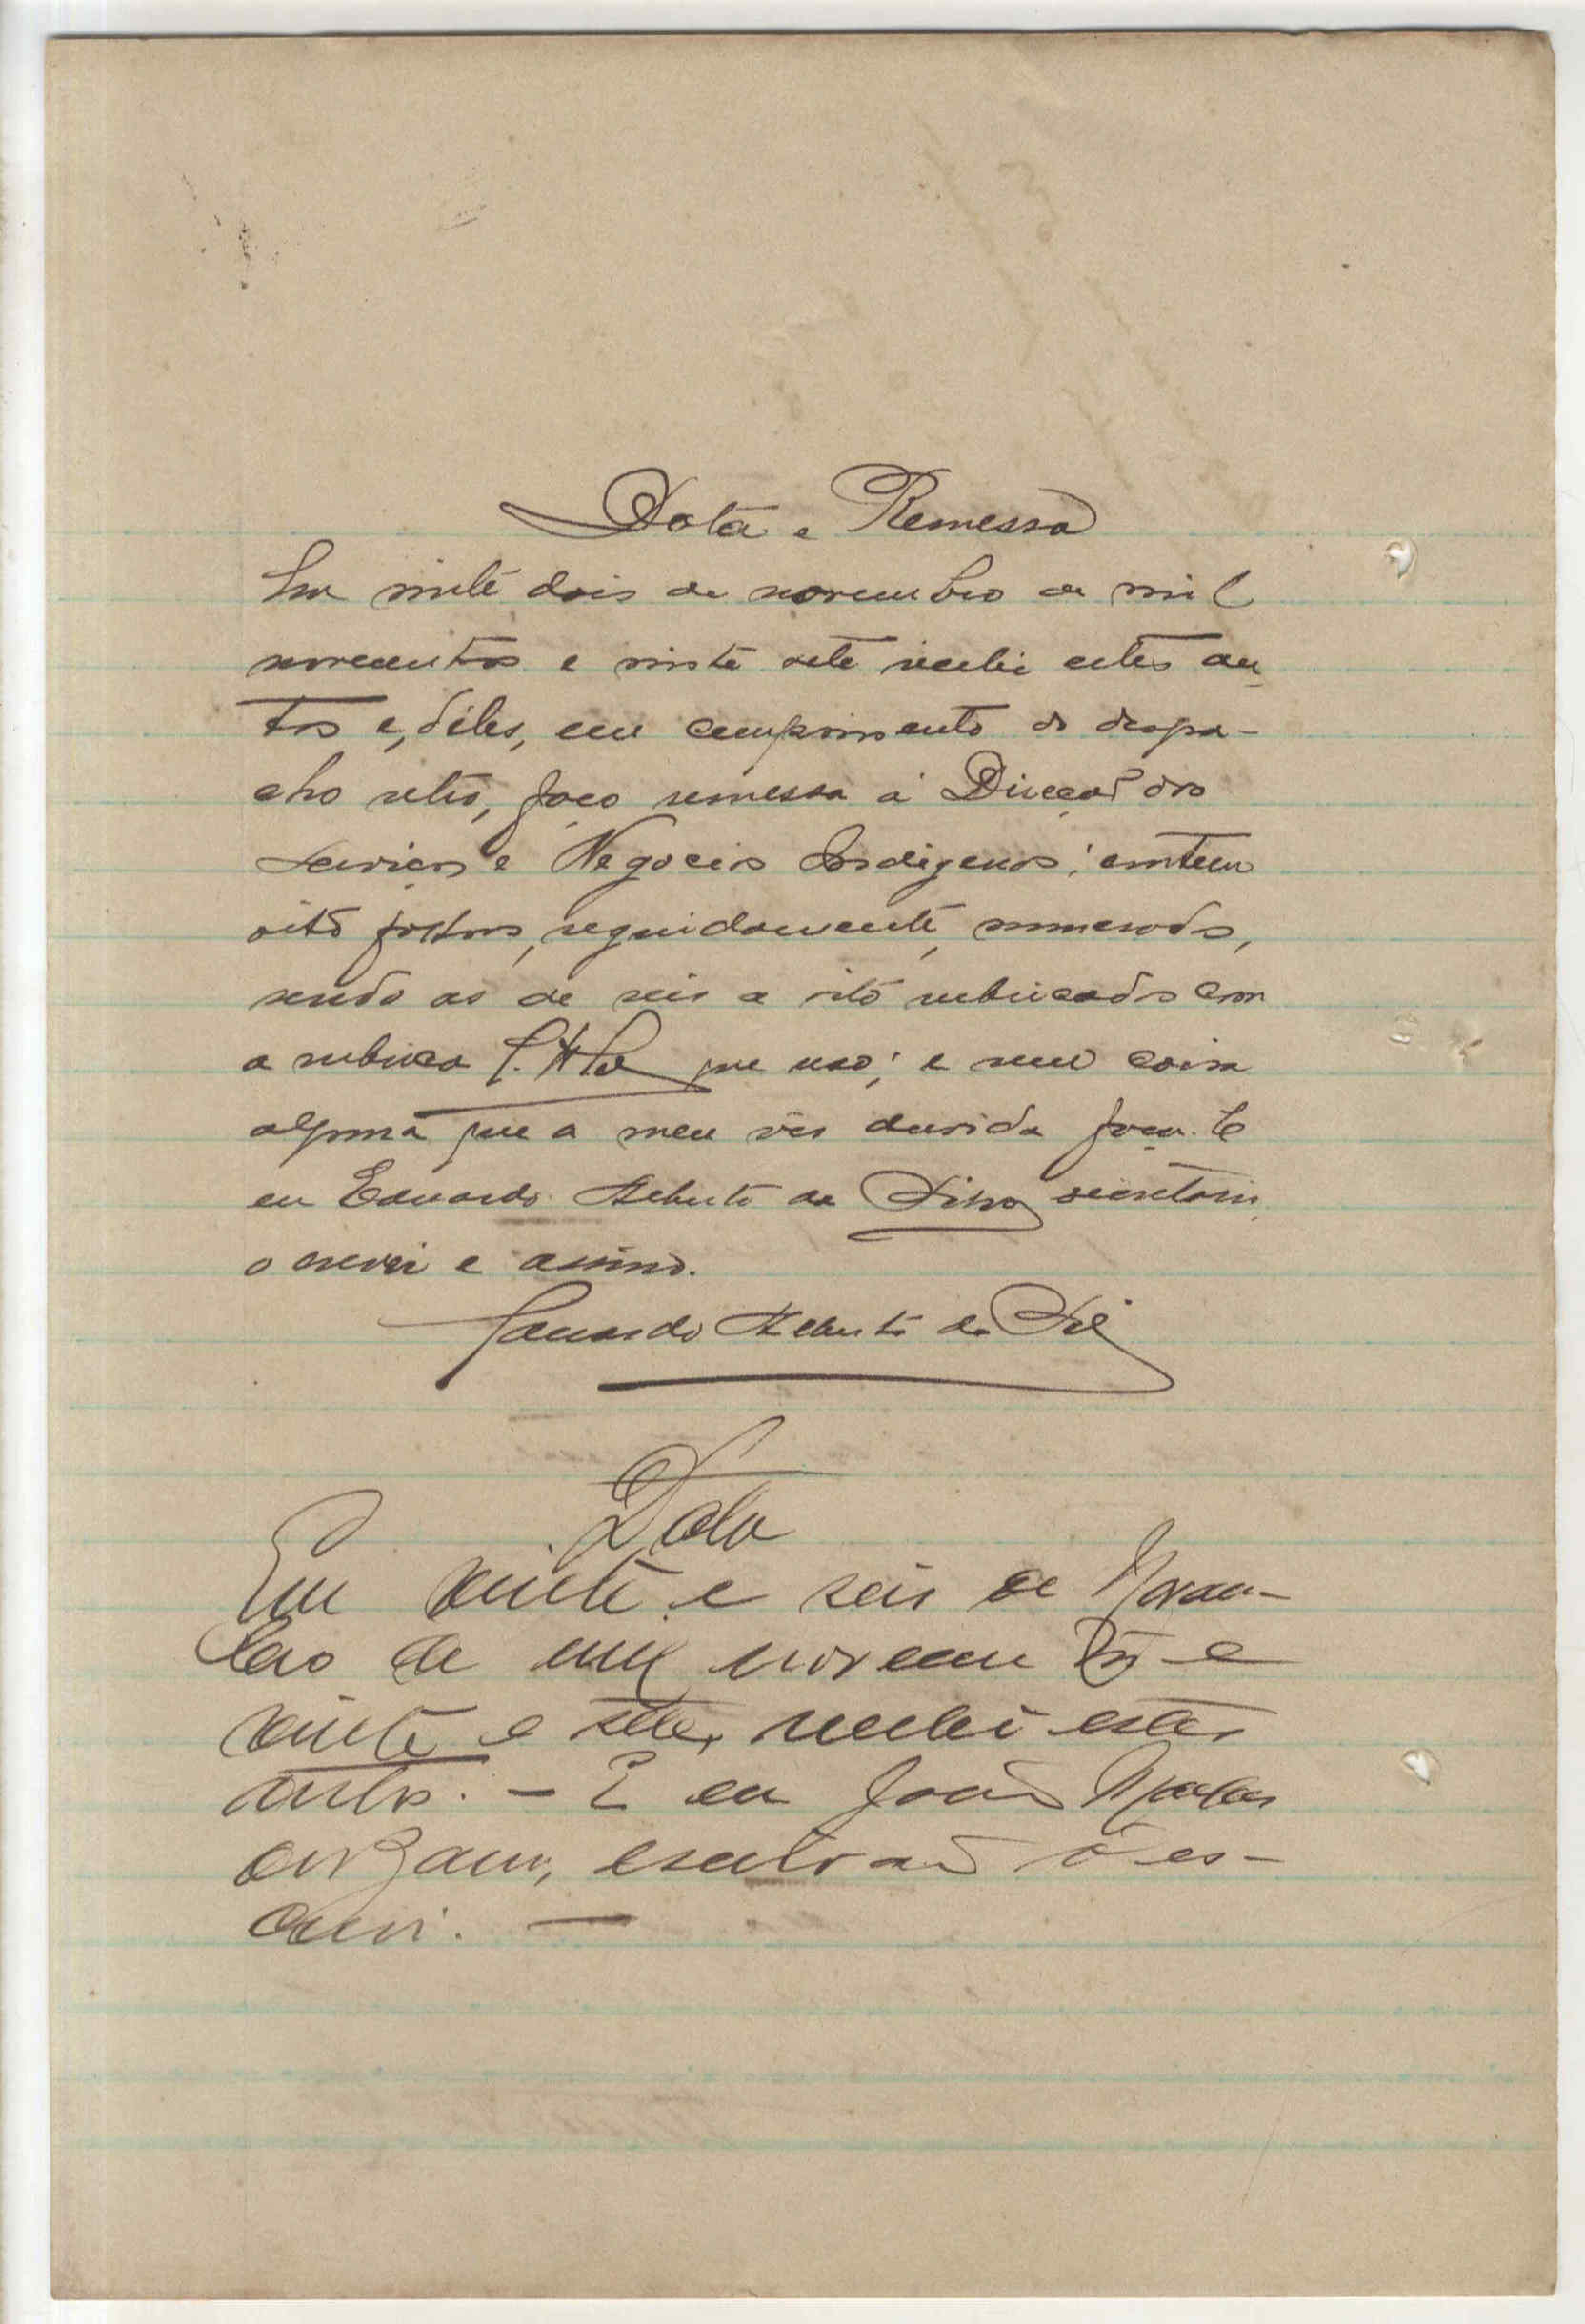 Data e Remessa
Em vinte dois de novembro de mil
novecentos e vinte sete recebi estes au-
tos e, deles, em cumprimento do despa-
cho retro, faço remessa á Direcção dos
Serviços e Negocios Indigenas; contem
oito folhas, seguidamente, numeradas,
sendo as de seis a oito rubricadas com
a rubrica que uso; e sem coisa
alguma que a meu vêr duvida faça. E
eu Eduardo Alberto da Silva secretario
o escrevi e assino.
Eduardo Alberto da Silva
Data
Em vinte e seis de Novem-
bro de mil novecentos e
vinte e sete, recebi estes
autos. - E eu João
escrivão o es-
crevi. -